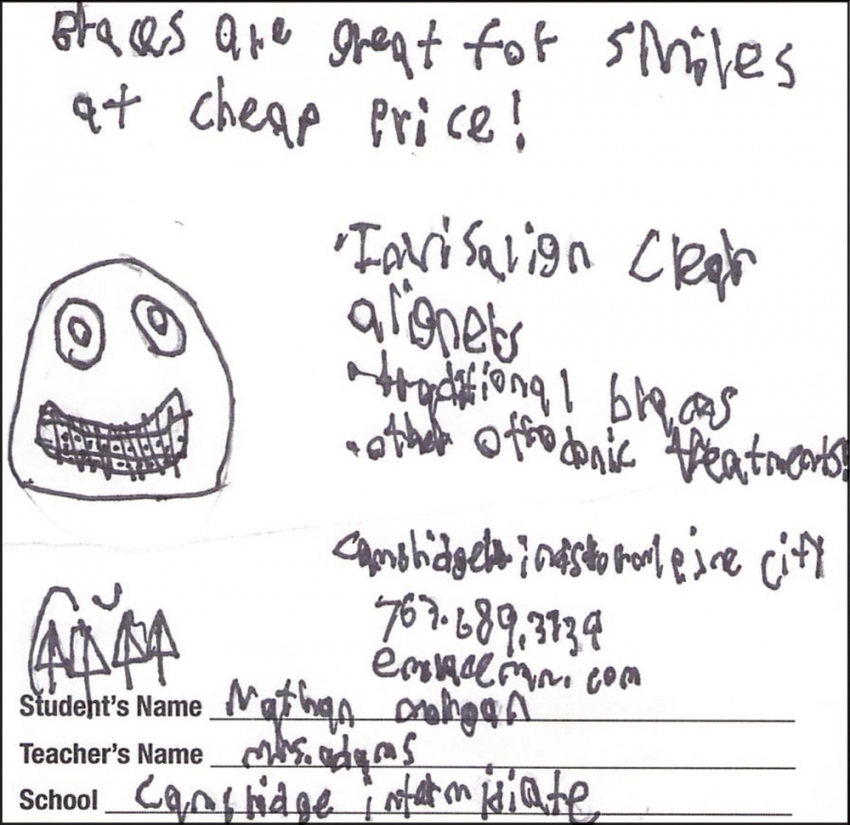 Braces are great for smiles
at cheap price!
Invisalign Clear
aligners
traditional braces
other treatments!
city
763.689.3939
Student's Name Nathan
Teacher's Name Mrs. adams
School Cambridge